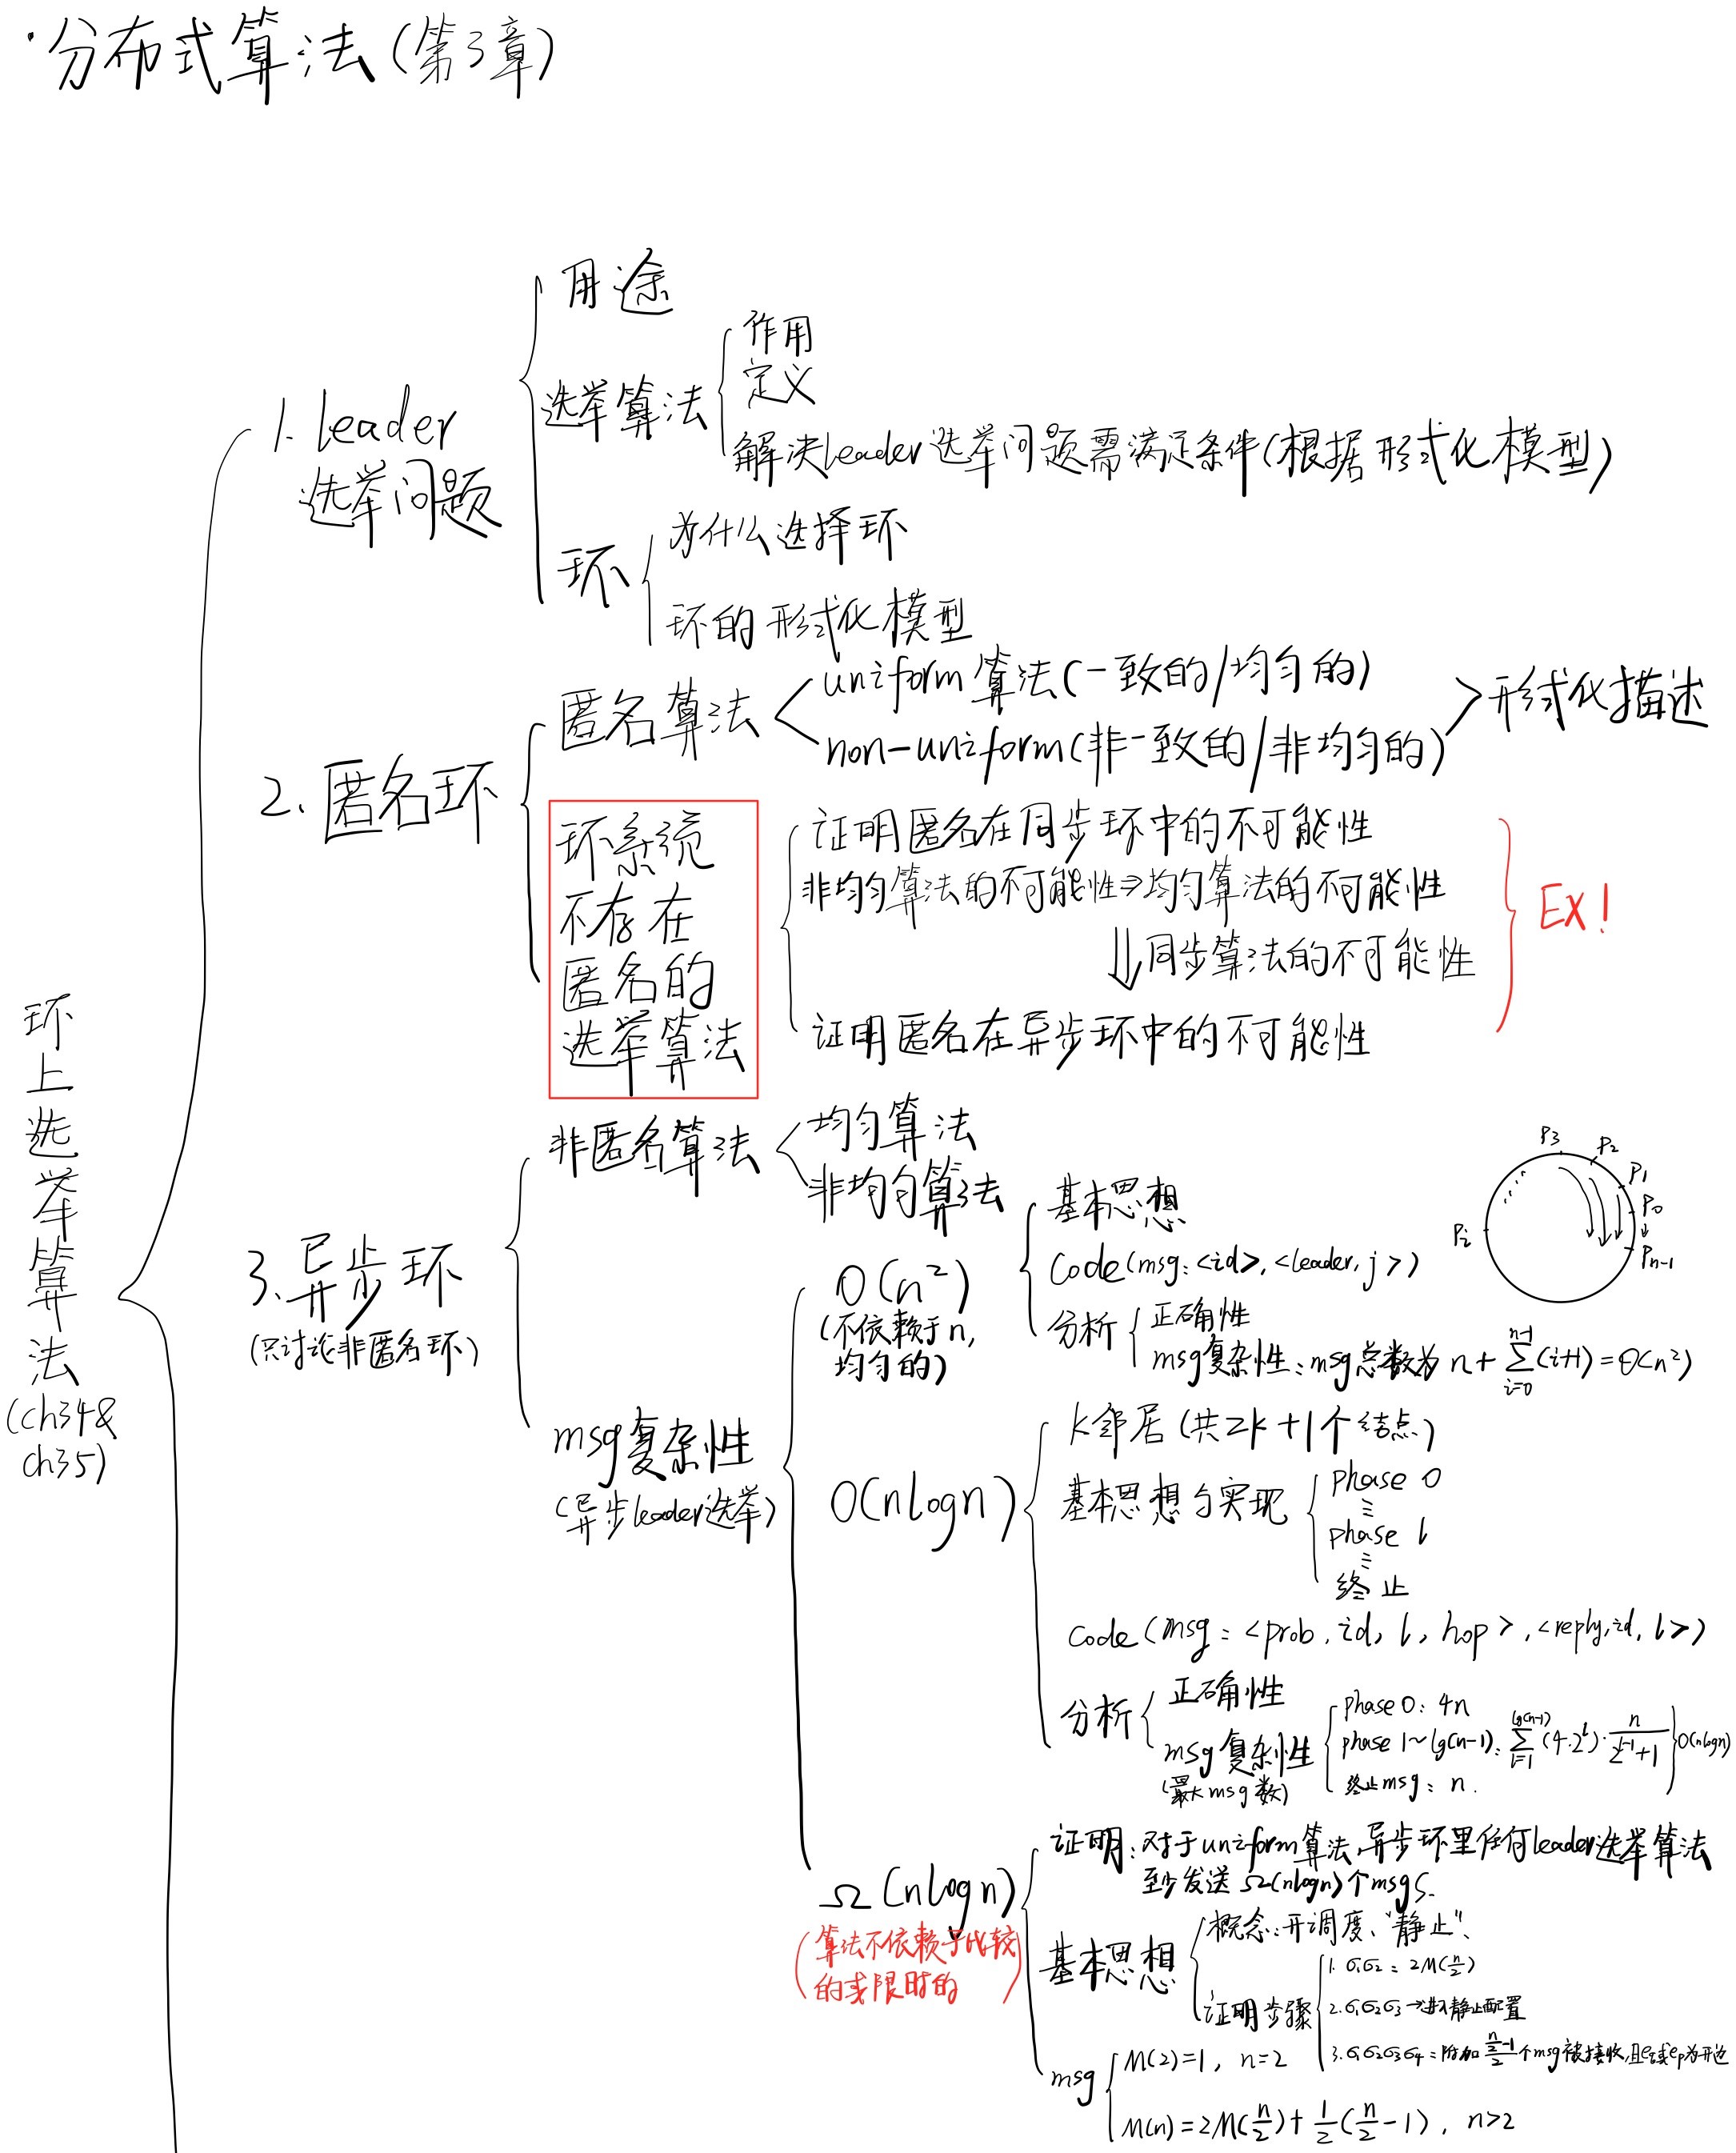 ·分布式算法(第3章)
环上选举算法
(ch34&
ch35)
1. leader
选举问题
用途
选举算法
作用
定义
解决leader选举问题需满足条件(根据形式化模型)
环
为什么选择环
环的形式化模型
2. 匿名环
匿名算法
uniform算法(一致的/均匀的)
non-uniform(非一致的/非均匀的)
形式化描述
环系统
不存在
匿名的
选举算法
证明匿名在同步环中的不可能性
非均匀算法的不可能性⇒均匀算法的不可能性
⇓同步算法的不可能性
证明匿名在异步环中的不可能性
EX!
3. 异步环
(只讨论非匿名环)
非匿名算法
均匀算法
非均匀算法
msg复杂性
(异步leader选举)
O(n²)
(不依赖于n,
均匀的)
基本思想
Code(msg: <id>, <leader, j>)
分析
正确性
msg复杂性: msg总数为 n + ∑_{i=0}^{n-1}(i+1) = O(n²)
P3
P2
P1
P0
Pn-1
Pi
O(nlogn)
k邻居(共2k+1个结点)
基本思想与实现
phase 0
⋮
phase l
⋮
终止
Code(msg: <prob, id, l, hop>, <reply, id, l>)
分析
正确性
msg复杂性
(最大msg数)
phase 0: 4n
phase 1~lg(n-1): ∑_{l=1}^{lg(n-1)}(4·2^l)·n/(2^{l-1}+1)
终止msg: n.
O(nlogn)
Ω(nlogn)
(算法不依赖于比较
的或限时的)
证明: 对于uniform算法,异步环里任何leader选举算法
至少发送Ω(nlogn)个msgs.
基本思想
概念: 开调度、"静止"、
证明步骤
1. σ1σ2: 2M(n/2)
2. σ1σ2σ3→进入静止配置
3. σ1σ2σ3σ4: 附加 (n/2-1)/2 个msg被接收,且eq或ep为开边
msg
M(2)=1, n=2
M(n)=2M(n/2)+1/2(n/2-1), n>2